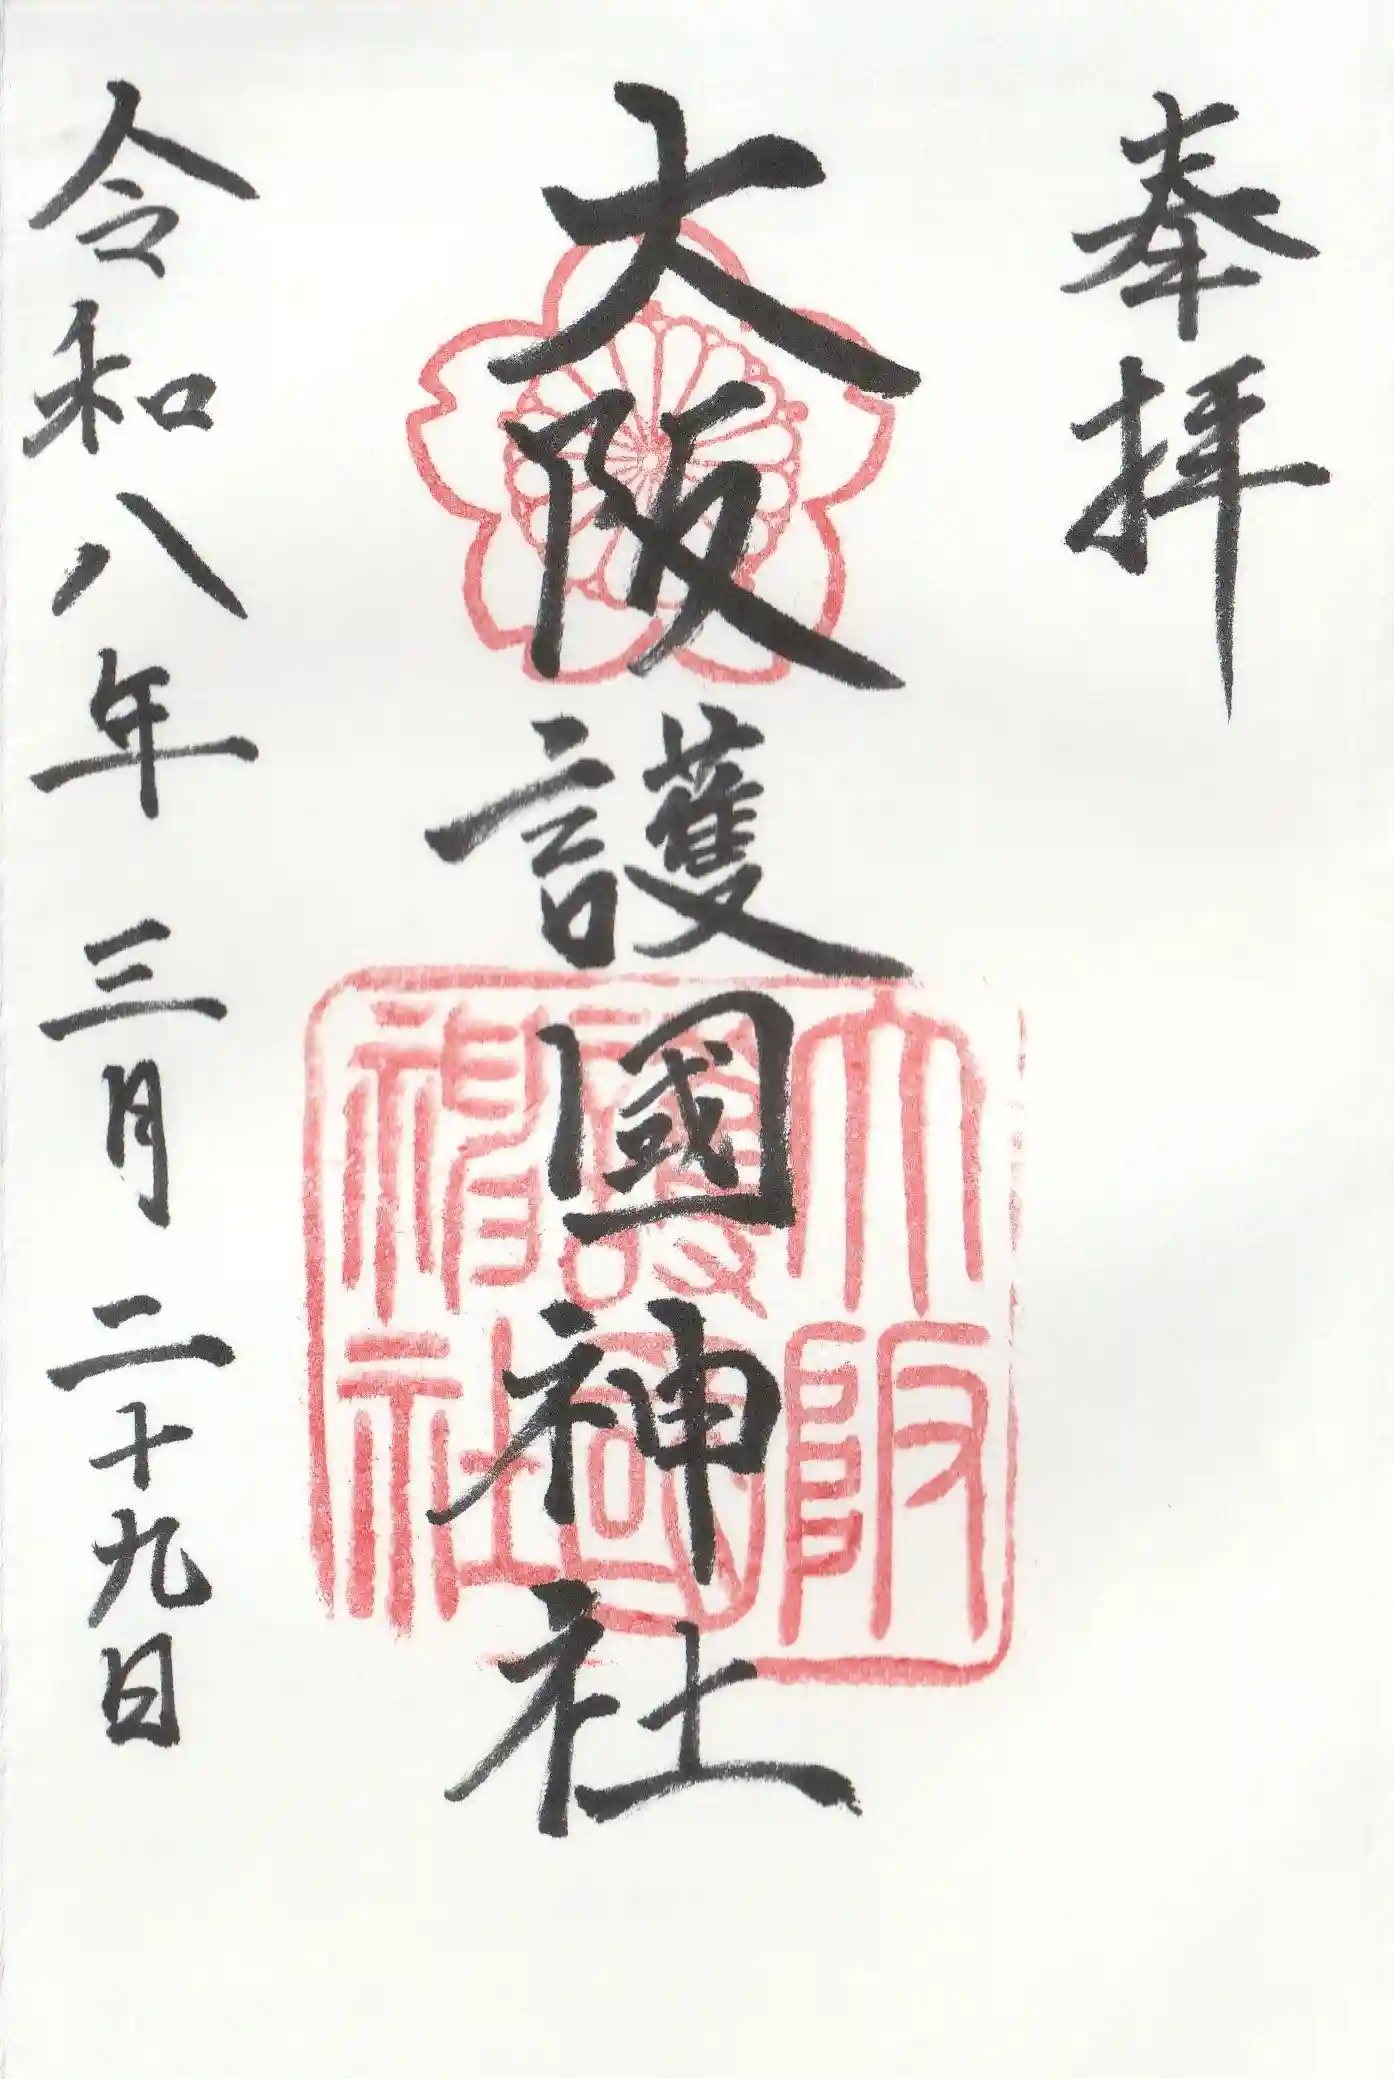 奉拝
大阪護國神社
大阪護國神社
令和八年三月二十九日